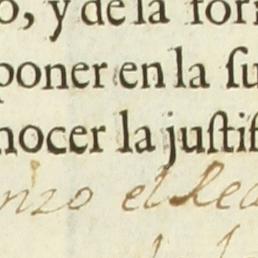 o, y de la for
poner en la ſu
nocer la juſtif
nzo el Red